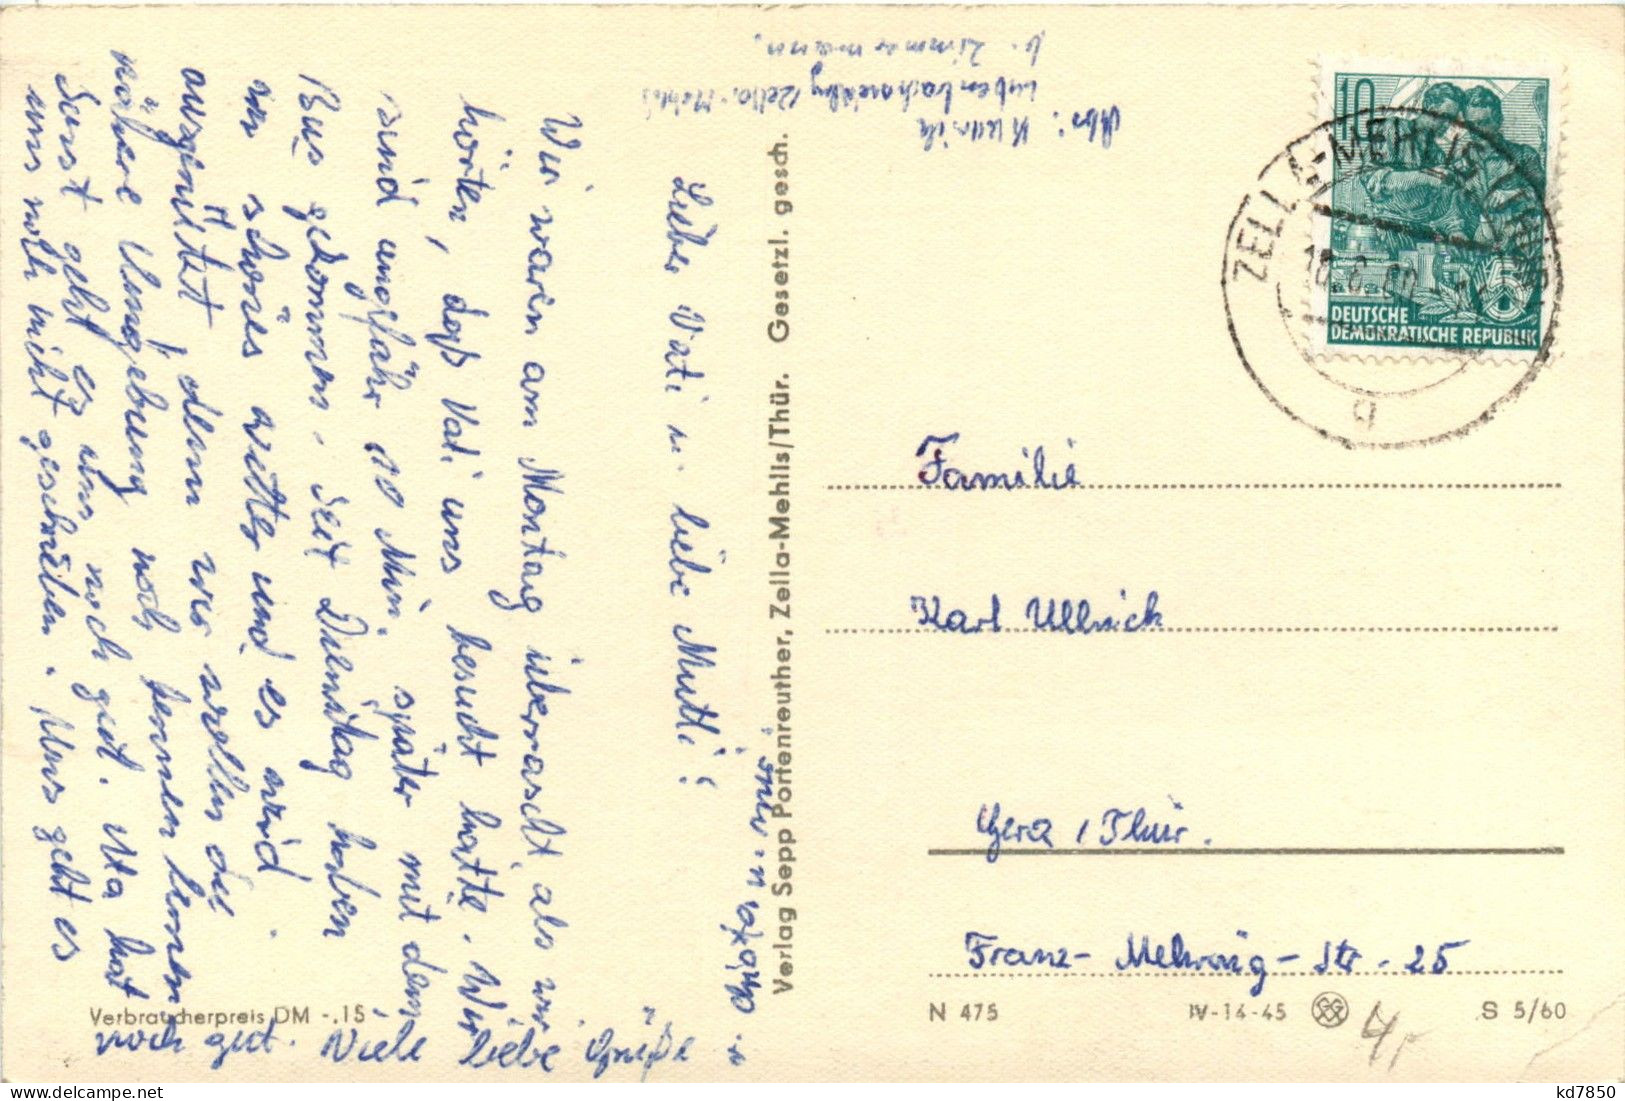 Lieber Vati u. liebe Mutti!
Wir waren am Montag überrascht als wir
hörten, daß Vati uns besucht hatte. Wir
sind ungefähr 10 Min. später mit dem
Bus gekommen. Seit Dienstag haben
wir schönes Wetter und es wird
ausgenützt denn wir wollen die
nähere Umgebung noch kennen lernen
Sonst geht es uns noch gut. hat
uns noch nicht geschrieben. Uns geht es
noch gut. Viele liebe Grüße
Abs:
b. Zimmermann,
Verlag Sepp Portenreuther, Zella-Mehlis/Thür. Gesetzl. gesch.
10
DEUTSCHE
DEMOKRATISCHE REPUBLIK
ZELLA-MEHLIS (THÜR)
g
Familie
Karl Ullrich
Gera / Thür.
Franz-Mehring-Str. 25
Verbraucherpreis DM -.15
N 475 IV-14-45 S 5/60
4,-
kd7850